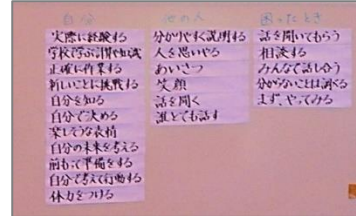 自分
実際に経験する
学校で学ぶ計算や知識
正確に作業する
新しいことに挑戦する
自分を知る
自分で決める
楽しそうな表情
自分の未来を考える
前もって準備をする
自分で考えて行動する
体力をつける
他の人
分かりやすく説明する
人を思いやる
あいさつ
笑顔
話を聞く
誰とでも話す
困ったとき
話を聞いてもらう
相談する
みんなで話し合う
分からないことは調べる
まず、やってみる